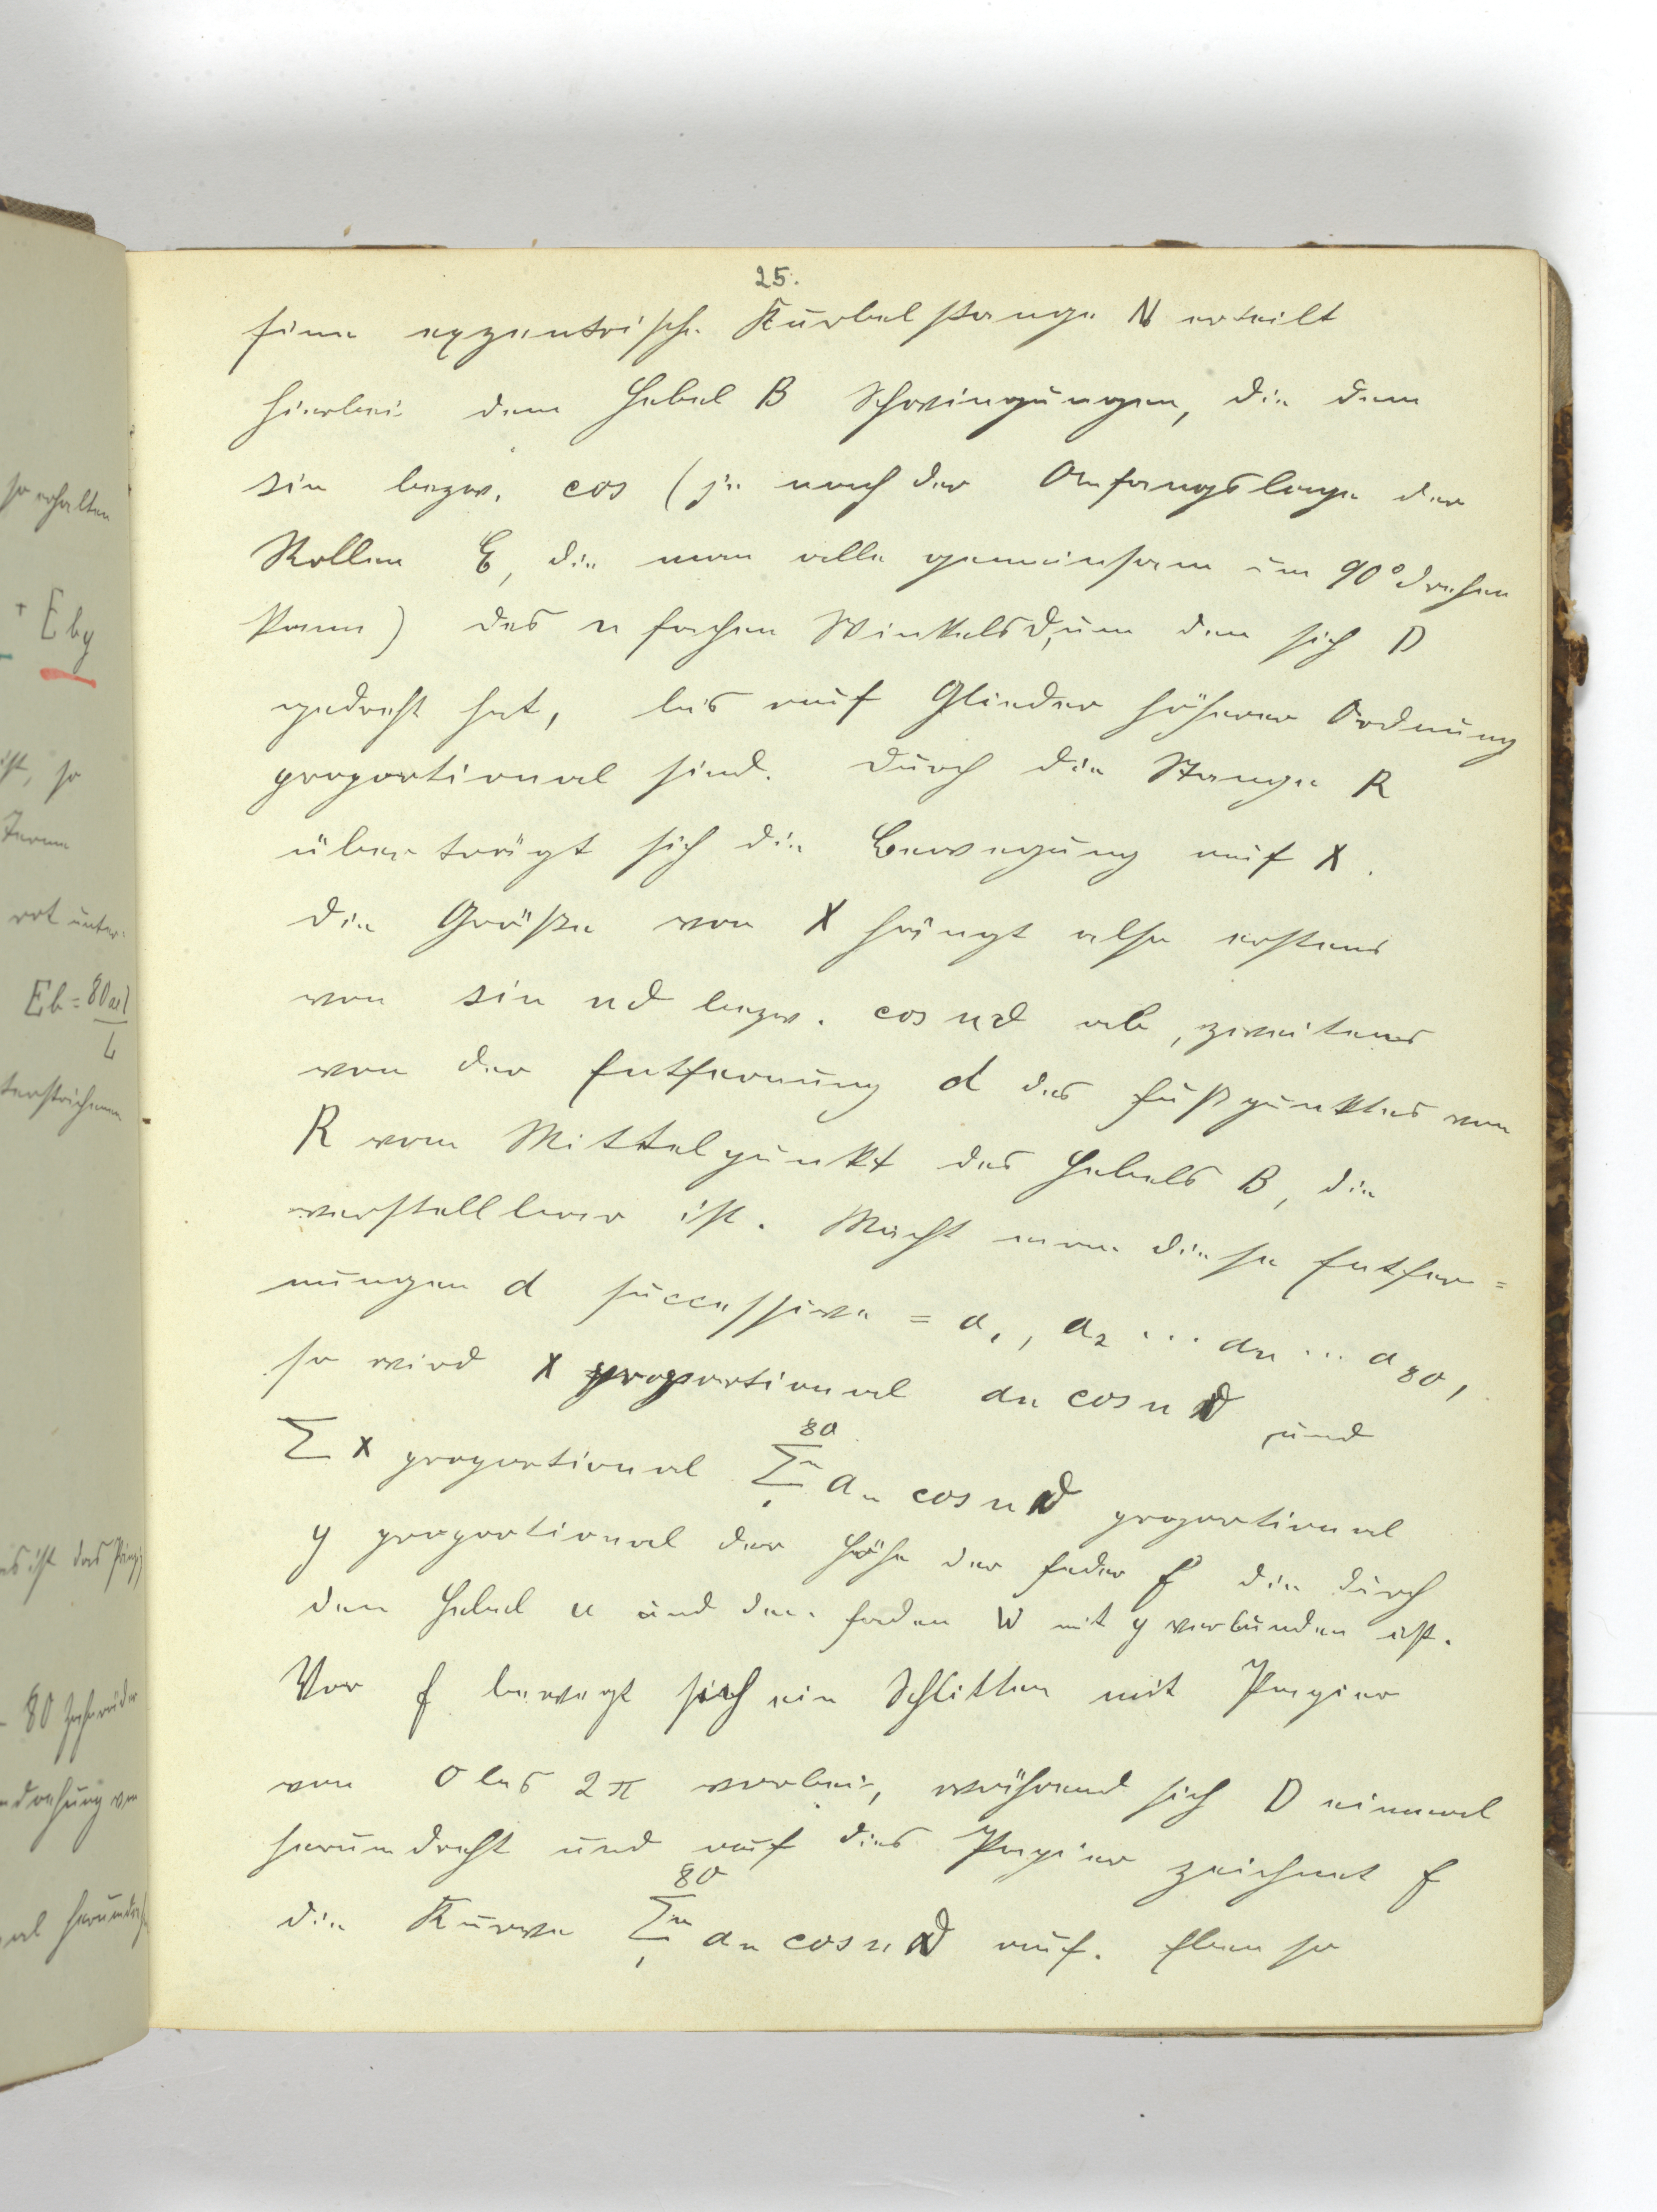 25.
Eine exzentrische Kurbelstange N erteilt
hierbei dem Hebel B Schwingungen, die dem
sin bezw. cos (je nach der Anfangslage der
Rollen C, die man alle gemeinsam um 90° drehen
kann) des n fachen Winkels ϑ, um den sich D
gedreht hat, bis auf Glieder höherer Ordnung
proportional sind. Durch die Stange R
überträgt sich die Bewegung auf X.
Die Größe von X hängt also erstens
von sin nϑ bezw. cos nϑ ab, zweitens
von der Entfernung d des Fußpunktes von
R vom Mittelpunkt des Hebels B, die
verstellbar ist. Macht man diese Entfer=
nungen d successive = a₁, a₂ ... an ... a₈₀,
so wird X proportional an cos nϑ und
∑ X proportional ⁸⁰∑ₙ₁ aₙ cos nϑ proportional
y proportional der Höhe der Feder F die durch
den Hebel u und den Faden W mit y verbunden ist.
Vor F bewegt sich ein Schlitten mit Papier
von 0 bis 2π vorbei, während sich D einmal
herumdreht und auf dies Papier zeichnet F
die Kurve ⁸⁰∑ₙ₁ an cos nϑ auf. Ebenso
so erhalten
+ Eby
ist, so
rot unter-
Eb = 80
es ist das Prinzip
80 Zahnräder
ndrehung von
al herumdreh